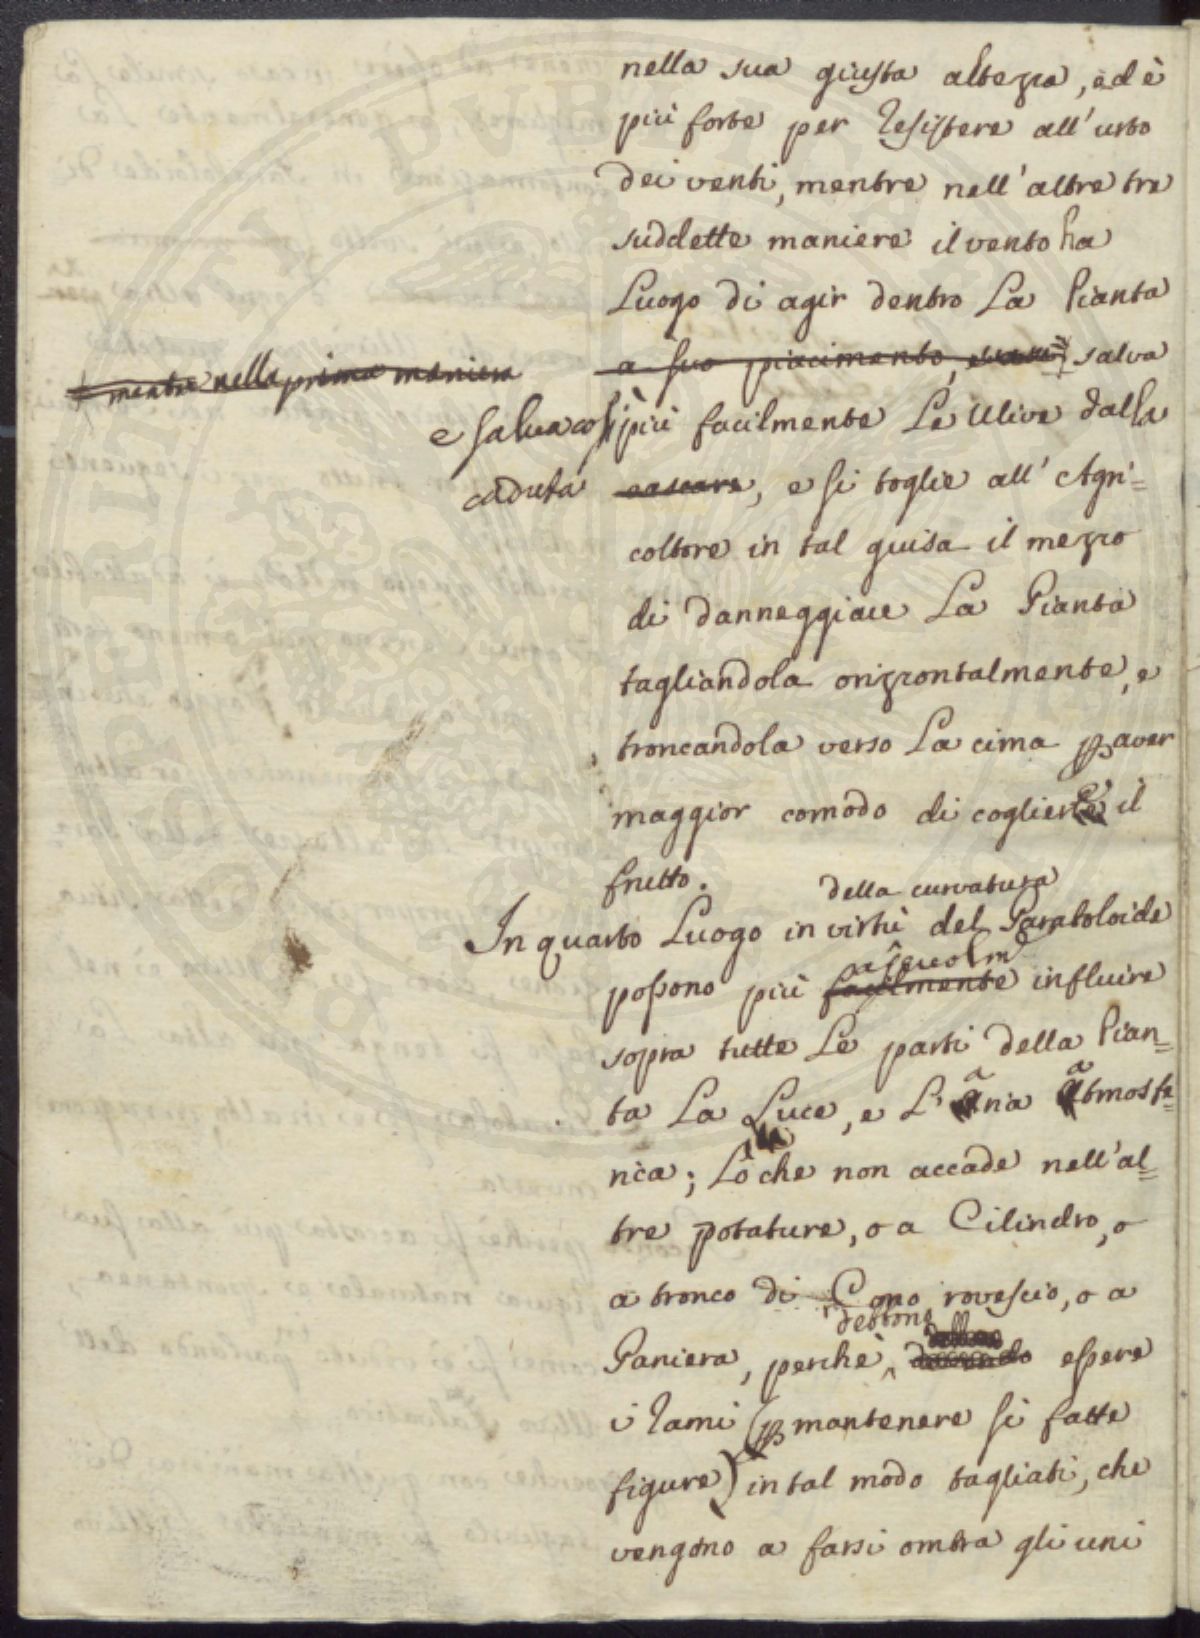 nella sua giusta altezza, ed è
più forte per resistere all'urto
dei venti, mentre nell'altre tre
suddette maniere il vento ha
Luogo di agir dentro La Pianta
a suo piacimento, salva
mentre nella prima maniera
e salva così più facilmente Le Ulive dalla
caduta cascare, e si toglie all'Agri=
coltore in tal guisa il mezzo
di danneggiare La Pianta
tagliandola orizzontalmente, e
troncandola verso La cima p aver
maggior comodo di coglierne il
frutto.
della curvatura
In quarto Luogo in virtù del Paraboloide
agevolm
possono più facilmente influire
sopra tutte Le parti della Pian=
ta La Luce, e L'aria atmosfe=
rica; Lo che non accade nell'al=
tre potature, o a Cilindro, o
a tronco di Cono rovescio, o a
debbono
Paniera, perchè, dovendo essere
i rami (p mantenere si fatte
figure) in tal modo tagliati, che
vengono a farsi ombra gli uni